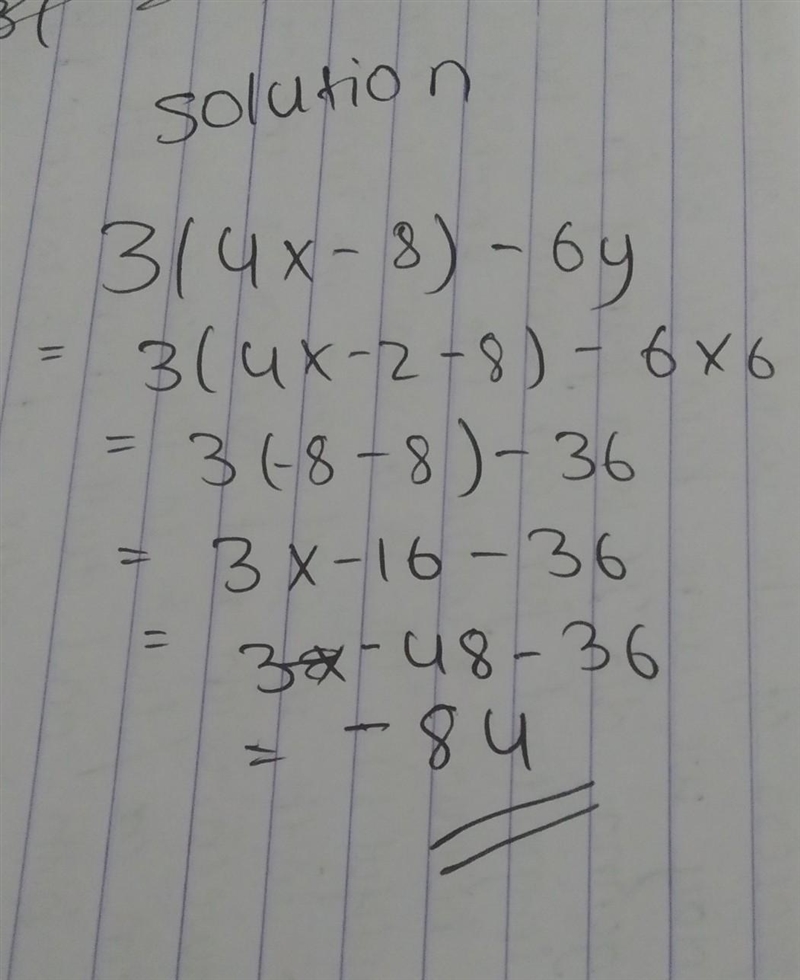 solution
3(4x - 8) - 6y
= 3(4x-2-8) - 6x6
= 3(-8-8) - 36
= 3x-16 - 36
= - 48 - 36
= - 84